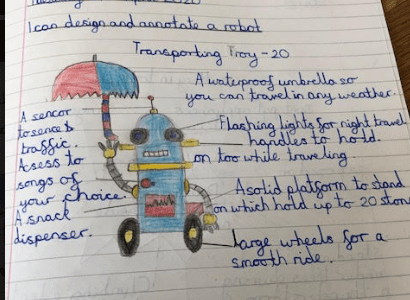 2020
I can design and annotate a robot
Transporting Troy - 20
A waterproof umbrella so
you can travel in any weather.
A sencor
to sence
traffic.
Flashing lights for night travel
handles to hold
on too while traveling.
Acsess to
songs of
your choice.
A solid platform to stand
on which hold up to 20 stone
A snack
dispenser.
large wheels for a
smooth ride.